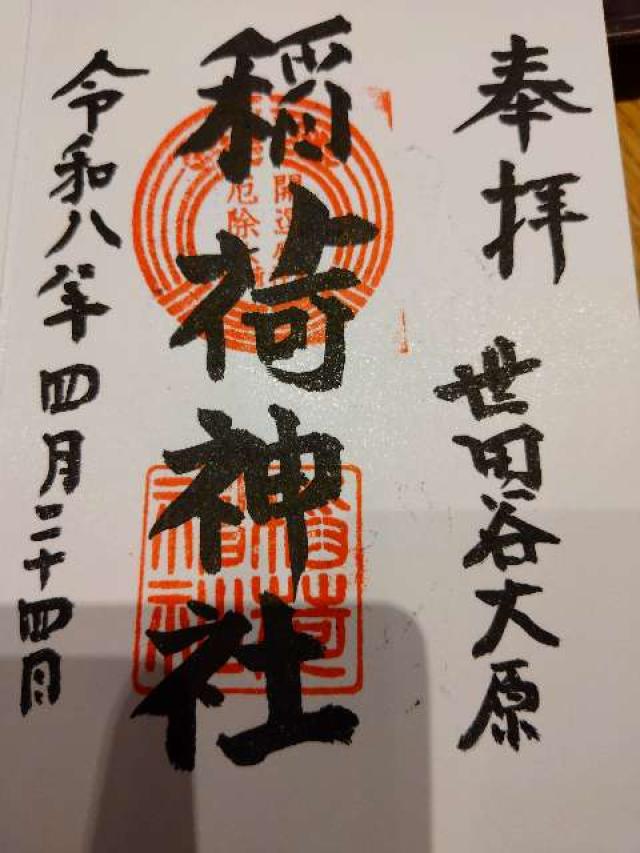 奉拝 世田谷大原
稲荷神社
令和八年四月二十四日
開運
厄除
稲荷
神社